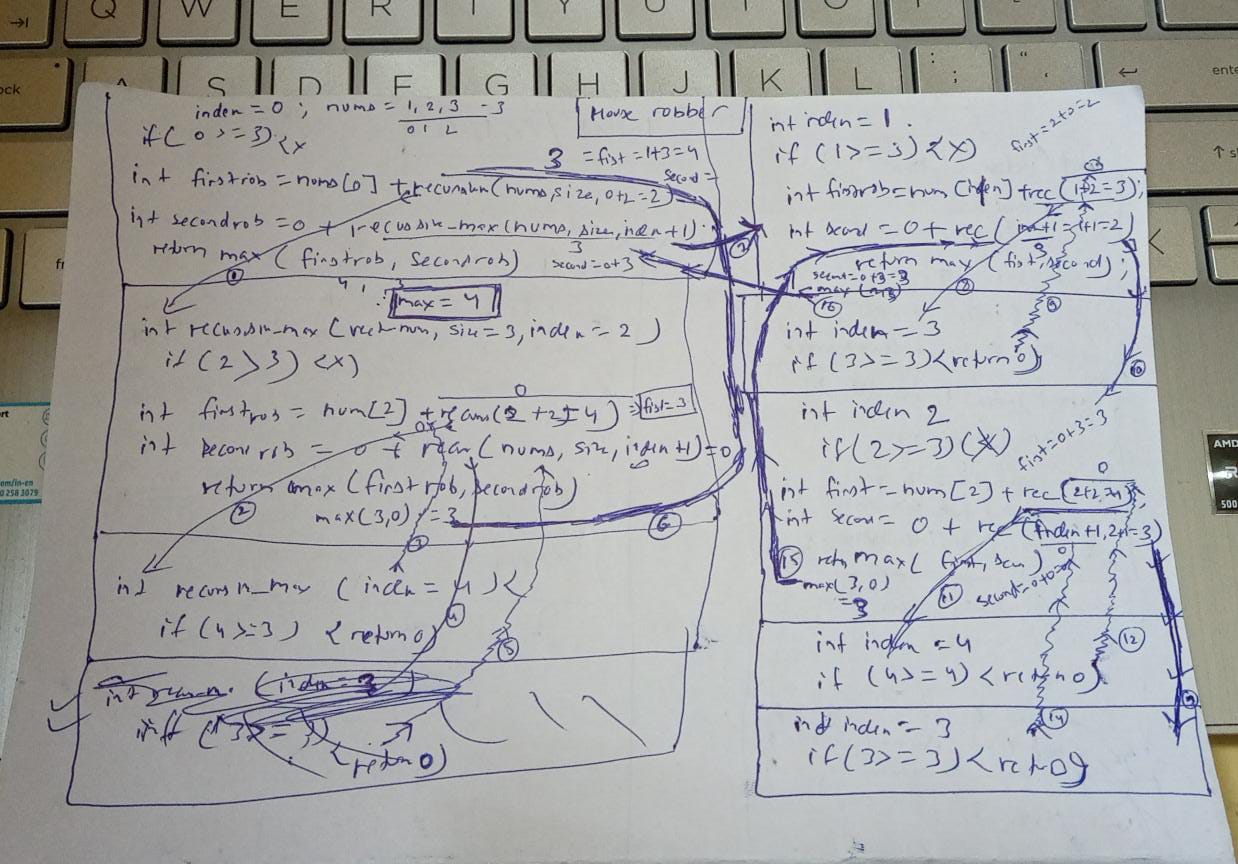 Q W E R T Y U I O P
A S D F G H J K L
ock
ente
↑ s
index = 0 ; nums = 1, 2, 3 - 3
0 1 2
House robber
if ( 0 >= 3) {x
3 = fist = 1+3=4
int firstrob = nums[0] + recursion (nums, size, 0+2=2)
second =
int secondrob = 0 + recussiv-max (nums, size, index+1)
3
return max ( firstrob, secondrob)
second=0+3
1
4,
max = 4
int recussiv-max ( nums, size=3, index=2 )
if (2>3) {x}
0
int firstrob = num[2] + recurs(2+2=4) = fist=3
int secondrob = 0 + recur ( nums, size, index+1)=0
return max (firstrob, secondrob)
max(3,0) = 3
2
3
6
int recursn_max ( index = 4 ) {
if (4>=3) { return 0}
4
5
int recursn. (index=3)
if (3>=3)
{return 0}
int index = 1.
first=2+0=2
if (1>=3) {x}
int firstrob=num[index]+rec (1+2=3);
int second = 0+rec( index+1=1+1=2)
3
return max (fist, second);
second=0+3=3
max (2,3)
7
8
16
int index = 3
9
if (3>=3){return 0}
10
int index 2
if(2>=3) (x)
fist=0+3=3
0
int first=num[2] + rec(2+2, 4);
int secon= 0 + rec (index+1, 2+1=3)
15 retn max( first, scn)
0
max(3,0)
=3
11
second=0+0=0
int index =4
12
if (4>=4) {return 0}
13
14
int index = 3
if(3>=3){retn 0}
em/in-en
0 258 3079
AMD
R
500